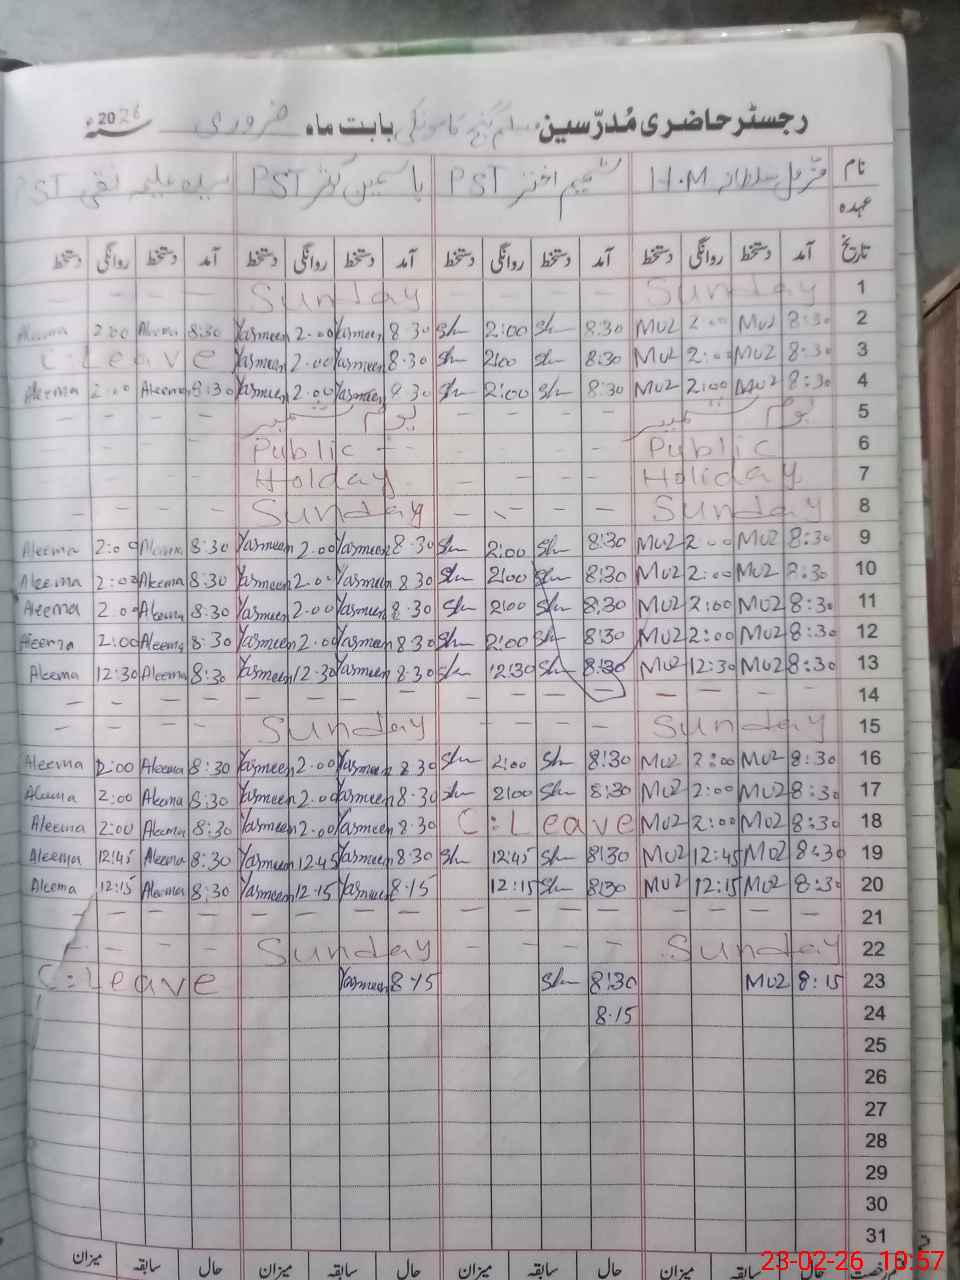 رجسٹر حاضری مُدرّسین مسلم گنج کامونکی بابت ماہ فروری سنہ 2026
نام H.M شمیم اختر PST یاسمین کوثر PST سیدہ علیمہ نقی PST
عہدہ
تاریخ آمد دستخط روانگی دستخط آمد دستخط روانگی دستخط آمد دستخط روانگی دستخط آمد دستخط روانگی دستخط
1 Sunday — — — — Sunday — — — —
2 8:30 MU2 2:00 MU2 8:30 Sh 2:00 Sh 8.30 Yasmeen 2.00 Yasmeen 8:30 Aleema 2:00 Aleema
3 8:30 MU2 2:00 MU2 8:30 Sh 2:00 Sh 8.30 Yasmeen 2.00 Yasmeen C:Leave
4 8:30 MU2 2:00 MU2 8:30 Sh 2:00 Sh 8.30 Yasmeen 2.00 Yasmeen 8:30 Aleema 2:00 Aleema
5 یوم کشمیر — — — — یوم کشمیر — — — —
6 Public — — — — Public — — — —
7 Holiday — — — — Holday — — — —
8 Sunday — — — — Sunday — — — —
9 8:30 MU2 2:00 MU2 8:30 Sh 2:00 Sh 8.30 Yasmeen 2.00 Yasmeen 8:30 Aleema 2:00 Aleema
10 8:30 MU2 2:00 MU2 8:30 Sh 2:00 Sh 8.30 Yasmeen 2.00 Yasmeen 8:30 Aleema 2:00 Aleema
11 8:30 MU2 2:00 MU2 8:30 Sh 2:00 Sh 8.30 Yasmeen 2.00 Yasmeen 8:30 Aleema 2:00 Aleema
12 8:30 MU2 2:00 MU2 8:30 Sh 2:00 Sh 8.30 Yasmeen 2.00 Yasmeen 8:30 Aleema 2:00 Aleema
13 8:30 MU2 12:30 MU2 8:30 Sh 12:30 Sh 8.30 Yasmeen 12.30 Yasmeen 8:30 Aleema 12:30 Aleema
14 — — — — — — — — — — — — — — — —
15 Sunday — — — — Sunday — — — —
16 8:30 MU2 2:00 MU2 8:30 Sh 2:00 Sh 8.30 Yasmeen 2.00 Yasmeen 8:30 Aleema 2:00 Aleema
17 8:30 MU2 2:00 MU2 8:30 Sh 2:00 Sh 8.30 Yasmeen 2.00 Yasmeen 8:30 Aleema 2:00 Aleema
18 8:30 MU2 2:00 MU2 C:Leave 8.30 Yasmeen 2.00 Yasmeen 8:30 Aleema 2:00 Aleema
19 8:30 MU2 12:45 MU2 8:30 Sh 12:45 Sh 8.30 Yasmeen 12.45 Yasmeen 8:30 Aleema 12:45 Aleema
20 8:30 MU2 12:15 MU2 8:30 Sh 12:15 8.15 Yasmeen 12.15 Yasmeen 8:30 Aleema 12:15 Aleema
21 — — — — — — — — — — — — — — — —
22 Sunday — — — — Sunday — — — —
23 8:15 MU2 8:30 Sh 8.15 Yasmeen C:Leave
24 8.15
25
26
27
28
29
30
31
حال سابقہ میزان حال سابقہ میزان
23-02-26 10:57